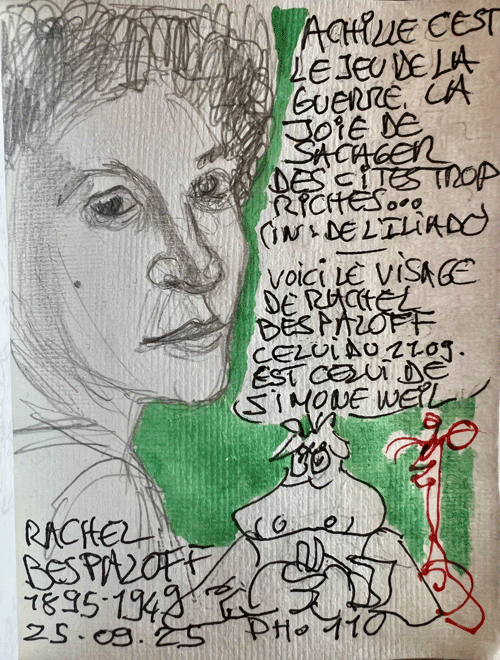 ACHILLE C'EST
LE JEU DE LA
GUERRE, LA
JOIE DE
SACAGER
DES CITES TROP
RICHES...
(IN: DE L'ILIADE)
VOICI LE VISAGE
DE RACHEL
BESPALOFF
CELUI DU 21.09.
EST CELUI DE
SIMONE WEIL
RACHEL
BESPALOFF
1895-1949
25.09.25
PH. 110